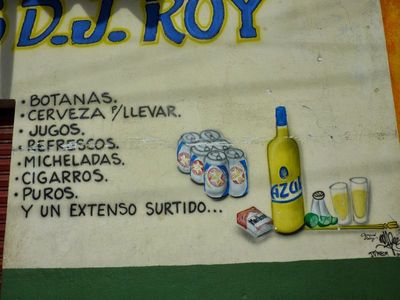 D.J. ROY
· BOTANAS.
· CERVEZA P/LLEVAR.
· JUGOS.
· REFRESCOS.
· MICHELADAS.
· CIGARROS.
· PUROS.
Y UN EXTENSO SURTIDO...
AZUL